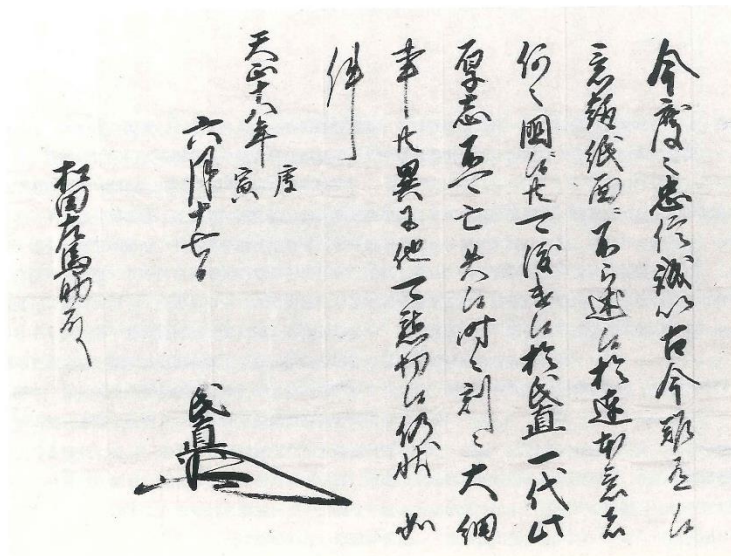 今度之忠信誠以古今難有候
意趣紙面不可述候於達本意者
何之國候共可渡遣候於氏直一代此
厚志不可亡失候時之刻之大細
事候共異于他可懇切候仍状如
件
天正十八年庚寅
六月十七日 氏直
松田左馬助殿